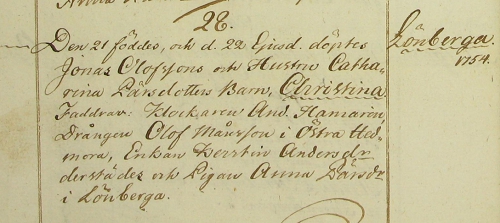 28.
Den 21 föddes, och d. 22 Ejusd. döptes
Jonas Olofssons och Hustru Catha-
rina Larsdotters Barn, Christina
Faddrar: Klockaren And. Hamarin,
Drängen Olof Månsson i Östra Hed-
mora, Enkan Kerstin Andersdr
derstädes och Pigan Anna Larsdr
i Lönberga.
Lönberga.
1754.